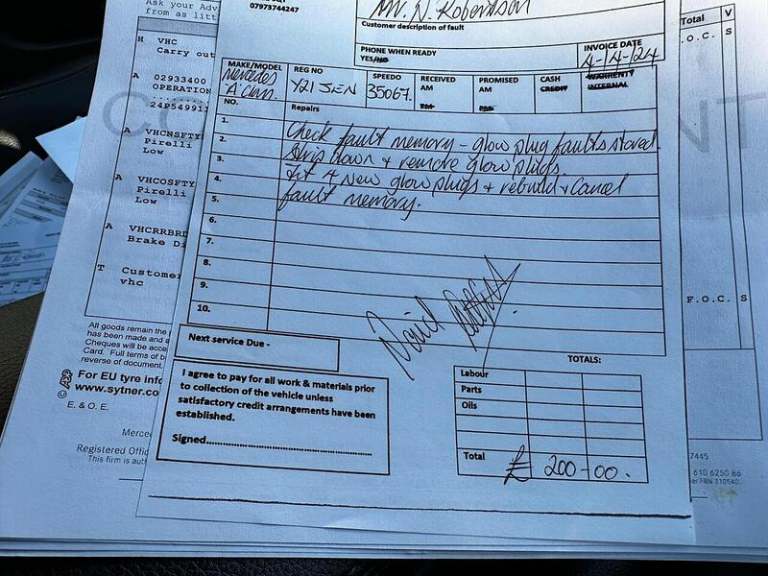 Ask your Adv
from as litt
07973744247
Mr. N. Robertson
Customer description of fault
PHONE WHEN READY
YES/NO
INVOICE DATE
4-14-24
Total V
.O.C. S
H VHC
Carry out
A 02933400
OPERATION
24P549911
A VHCNSFTY
Pirelli
Low
A VHCOSFTY
Pirelli
Low
A VHCRRBRD
Brake Di
T Customer
vhc
F.O.C. S
MAKE/MODEL
Mercedes
'A' class.
REG NO
Y21 JEN
SPEEDO
35067.
RECEIVED
AM
PM
PROMISED
AM
PM
CASH
CREDIT
WARRENTY
INTERNAL
NO.
Repairs
1. Check fault memory - glow plug faults stored.
2. Strip down + remove glow plugs.
3. fit 4 new glow plugs + rebuild + Cancel
4. fault memory.
5.
6.
7.
8.
9.
10.
Next service Due -
I agree to pay for all work & materials prior
to collection of the vehicle unless
satisfactory credit arrangements have been
established.
Signed
TOTALS:
Labour
Parts
Oils
Total £ 200-00.
All goods remain the
has been made and
Cheques will be acce
Card. Full terms of b
reverse of document.
For EU tyre info
www.sytner.co
E. & O. E.
Merce
Registered Offic
This firm is auth
7445
610 6250 86